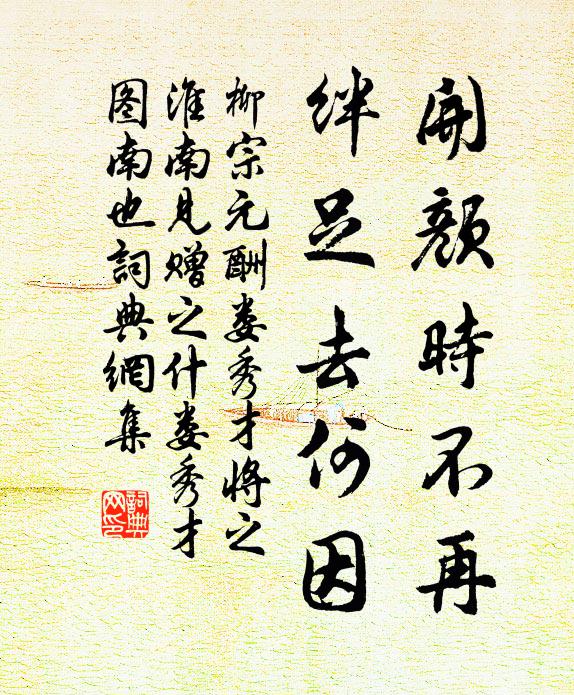 開顏時不再
絆足去何因
柳宗元酬娄秀才將之
淮南見赠之什娄秀才
图南也詞典網集
詞典
网印